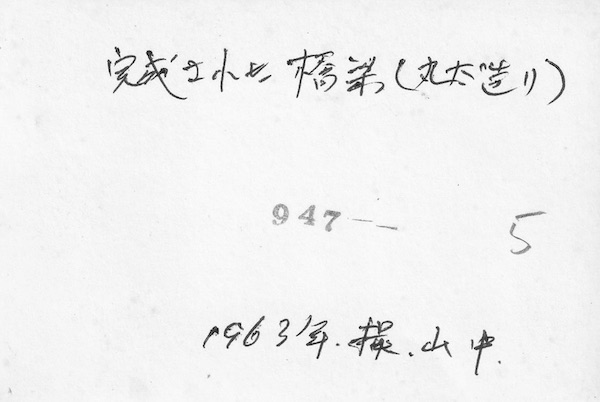 完成された橋梁(丸太造り)
947—
5
1963年.撮.山中.